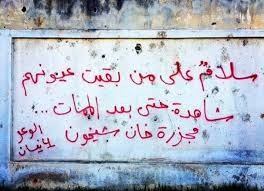 سلامٌ على من بقيت عيونهم
شاهدة حتى بعد الممات ...
مجزرة خان شيخون
الوعر